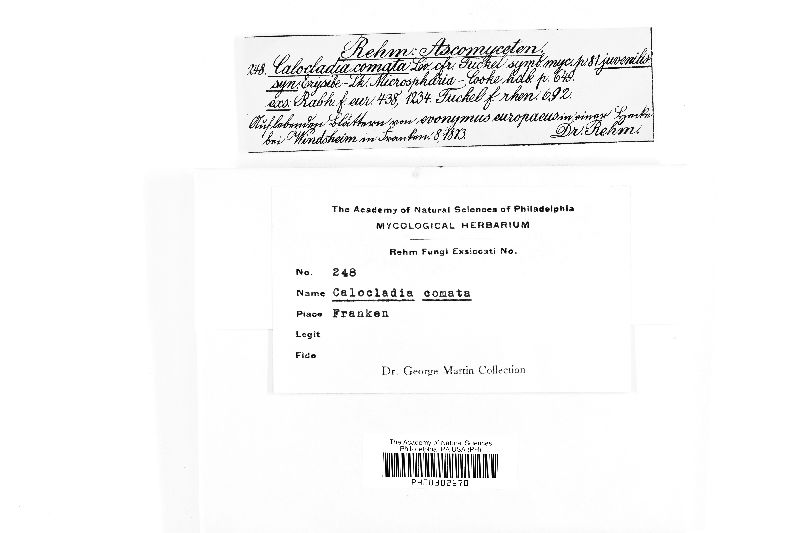 Rehm: Ascomyceten.
248. Calocladia comata Lév. cfr. Fuckel symb. myc. p. 81 juvenilis
syn: Erysibe - Lk. Microsphäria - Cooke hdb. p. 649.
exs: Rabh. f. eur. 438, 1234. Fuckel f. rhen. 692.
Auf lebenden Blättern von evonymus europaeus in einer Hecke
bei Windsheim in Franken. 8, 1873. Dr. Rehm.
The Academy of Natural Sciences of Philadelphia
MYCOLOGICAL HERBARIUM
Rehm Fungi Exsiccati No.
No. 248
Name Calocladia comata
Place Franken
Legit
Fide
Dr. George Martin Collection
The Academy of Natural Sciences
Philadelphia, PA USA (PH)